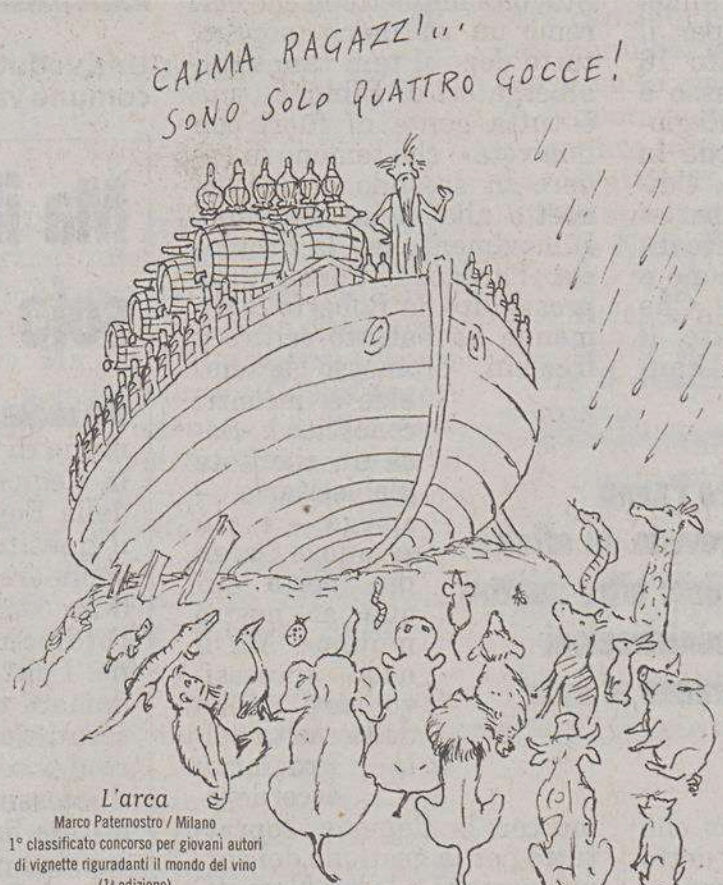 CALMA RAGAZZI...
SONO SOLO QUATTRO GOCCE!
L'arca
Marco Paternostro / Milano
1° classificato concorso per giovani autori
di vignette riguradanti il mondo del vino
(1ª edizione)